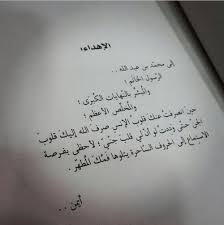 الإهداء:
إلى محمّد بن عبد الله ..
الرّسول الخاتم؛
والمبشّر بالنّهايات الكبرى؛
والمخلّص الأعظم؛
حين انصرفتْ عنك قلوبُ الإنس صرف الله إليك قلوبَ
الجنّ حتّى وددتُ لو أنّ لي قلب جنّيّ؛ لأحظى بفرصة
الاستماع إلى الحروف السّاحرة يتلوها فمُك المُطهّر.
أيمن ..